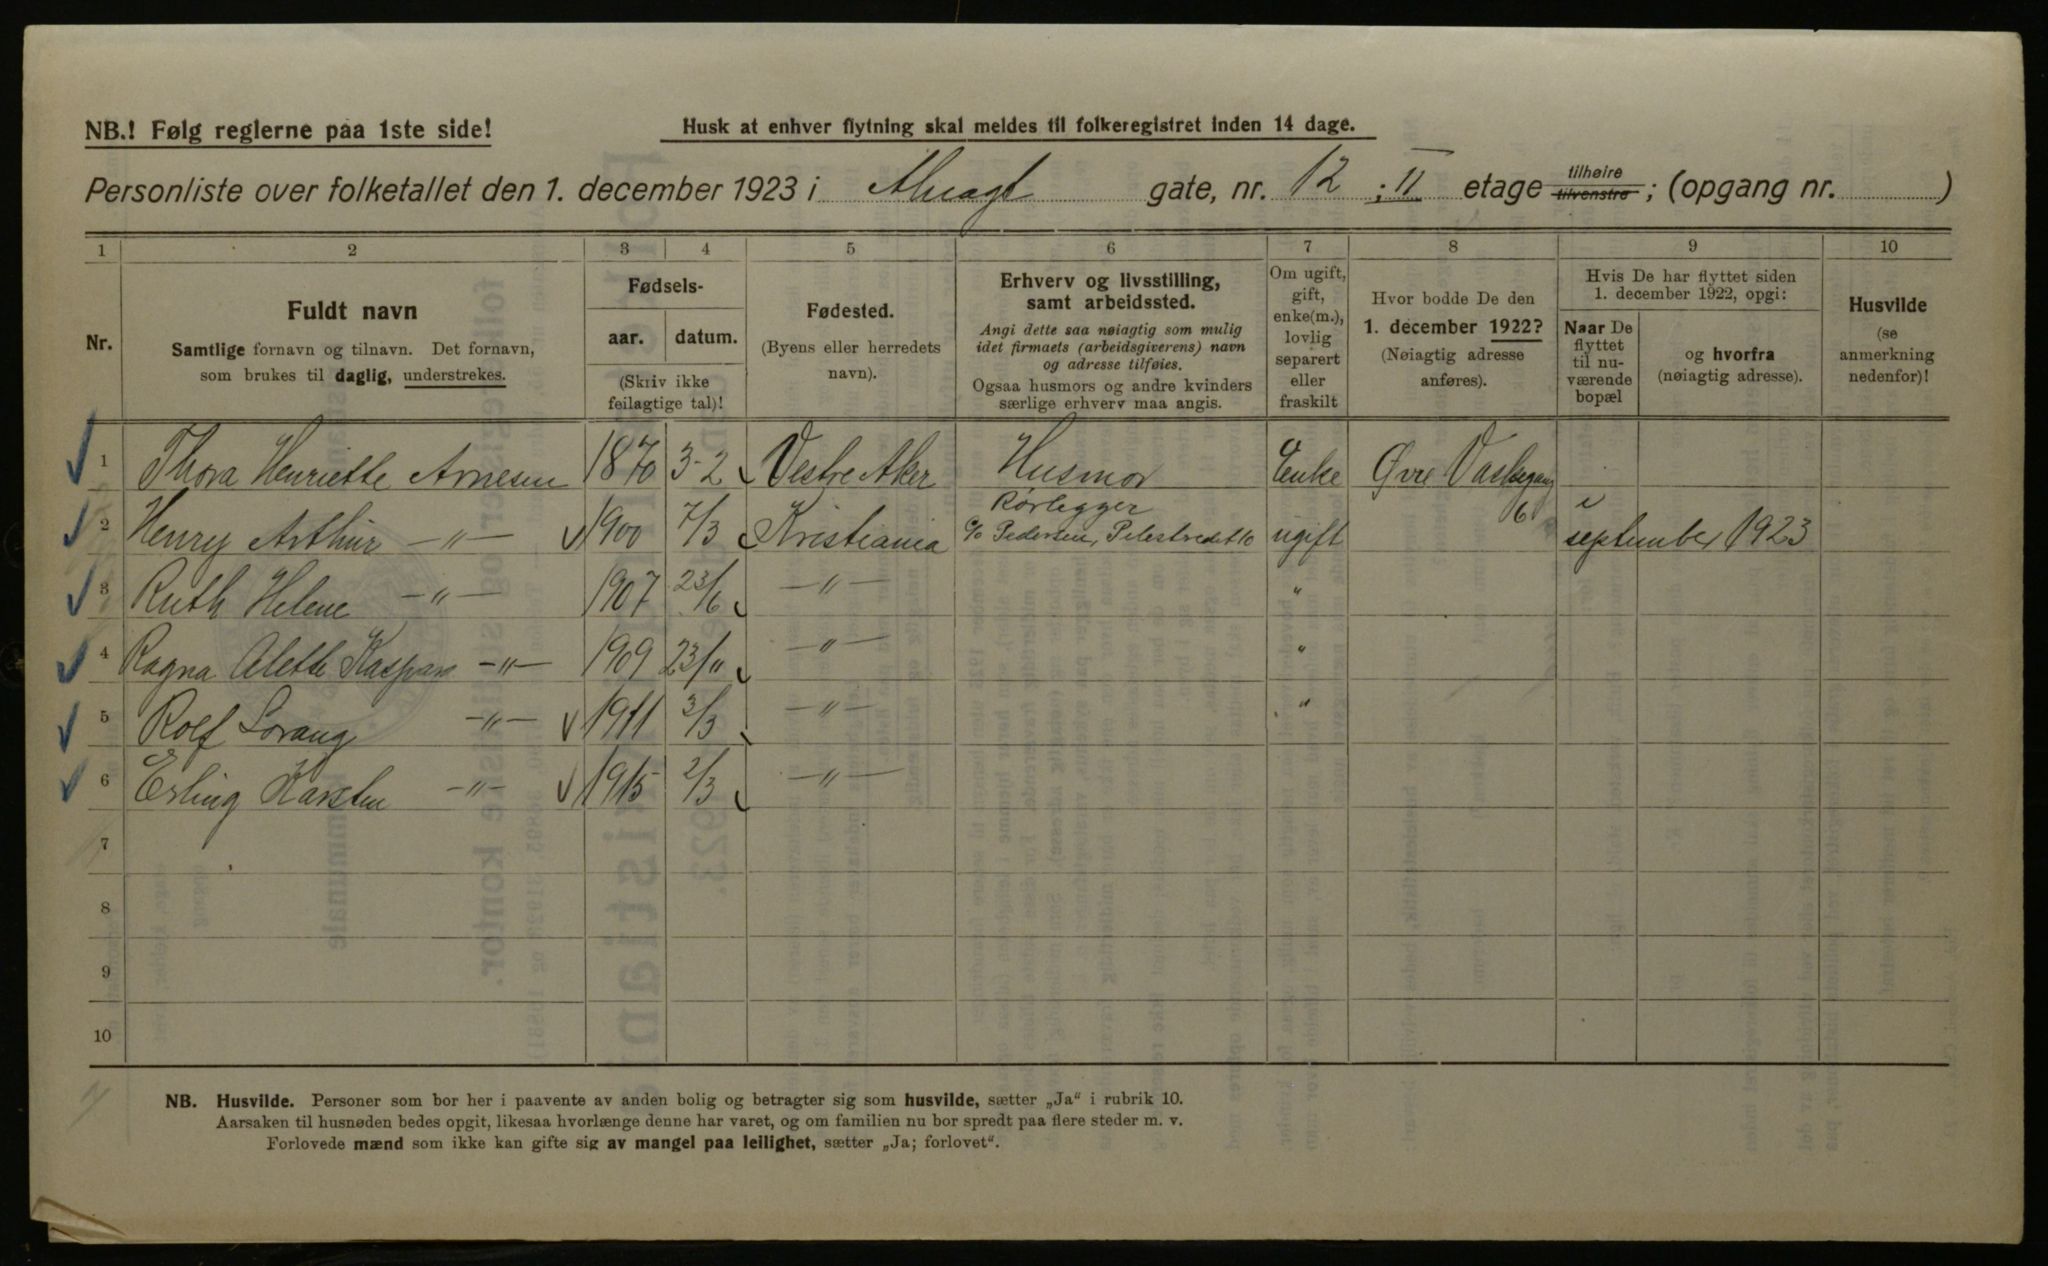 NB.! Følg reglerne paa 1ste side!
Husk at enhver flytning skal meldes til folkeregistret inden 14 dage.
Personliste over folketallet den 1. december 1923 i gate, nr. 12 ; II etage tilhøire tilvenstre ; (opgang nr. )
1 2 3 4 5 6 7 8 9 10
Nr.
Fuldt navn
Samtlige fornavn og tilnavn. Det fornavn,
som brukes til daglig, understrekes.
Fødsels-
aar. datum.
(Skriv ikke
feilagtige tal)!
Fødested.
(Byens eller herredets
navn).
Erhverv og livsstilling,
samt arbeidssted.
Angi dette saa nøiagtig som mulig
idet firmaets (arbeidsgiverens) navn
og adresse tilføies.
Ogsaa husmors og andre kvinders
særlige erhverv maa angis.
Om ugift,
gift,
enke(m.),
lovlig
separert
eller
fraskilt
Hvor bodde De den
1. december 1922?
(Nøiagtig adresse
anføres).
Hvis De har flyttet siden
1. december 1922, opgi:
Naar De
flyttet
til nu-
værende
bopæl
og hvorfra
(nøiagtig adresse).
Husvilde
(se
anmerkning
nedenfor)!
1 Thora Henriette Arnesen 1870 3-2 Vestre Aker Husmor Enke Øvre Vaskegang 6
2 Henry Arthur -"- 1900 7/3 Kristiania Rørlegger c/o Pedersen, Pilestredet 10 ugift i september 1923
3 Ruth Helene -"- 1907 23/6 -"- "
4 Ragna Alette Kaspara -"- 1909 23/11 -"- "
5 Rolf Lorang -"- 1911 3/3 -"- "
6 Erling Karsten -"- 1915 2/3 -"-
7
8
9
10
NB. Husvilde. Personer som bor her i paavente av anden bolig og betragter sig som husvilde, sætter „Ja“ i rubrik 10.
Aarsaken til husnøden bedes opgit, likesaa hvorlænge denne har varet, og om familien nu bor spredt paa flere steder m. v.
Forlovede mænd som ikke kan gifte sig av mangel paa leilighet, sætter „Ja; forlovet“.